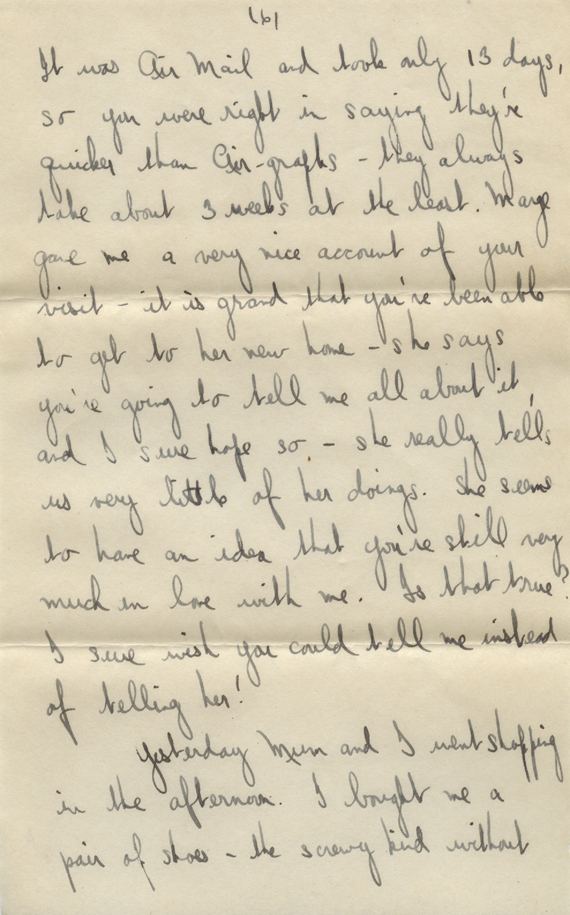 (6)
It was Air Mail and took only 13 days,
so you were right in saying they're
quicker than Air-graphs - they always
take about 3 weeks at the least. Marge
gave me a very nice account of your
visit - it is grand that you've been able
to get to her new home - she says
you're going to tell me all about it,
and I sure hope so - she really tells
us very little of her doings. She seems
to have an idea that you're still very
much in love with me. Is that true?
I sure wish you could tell me instead
of telling her!
Yesterday Mum and I went shopping
in the afternoon. I bought me a
pair of shoes - the screwy kind without